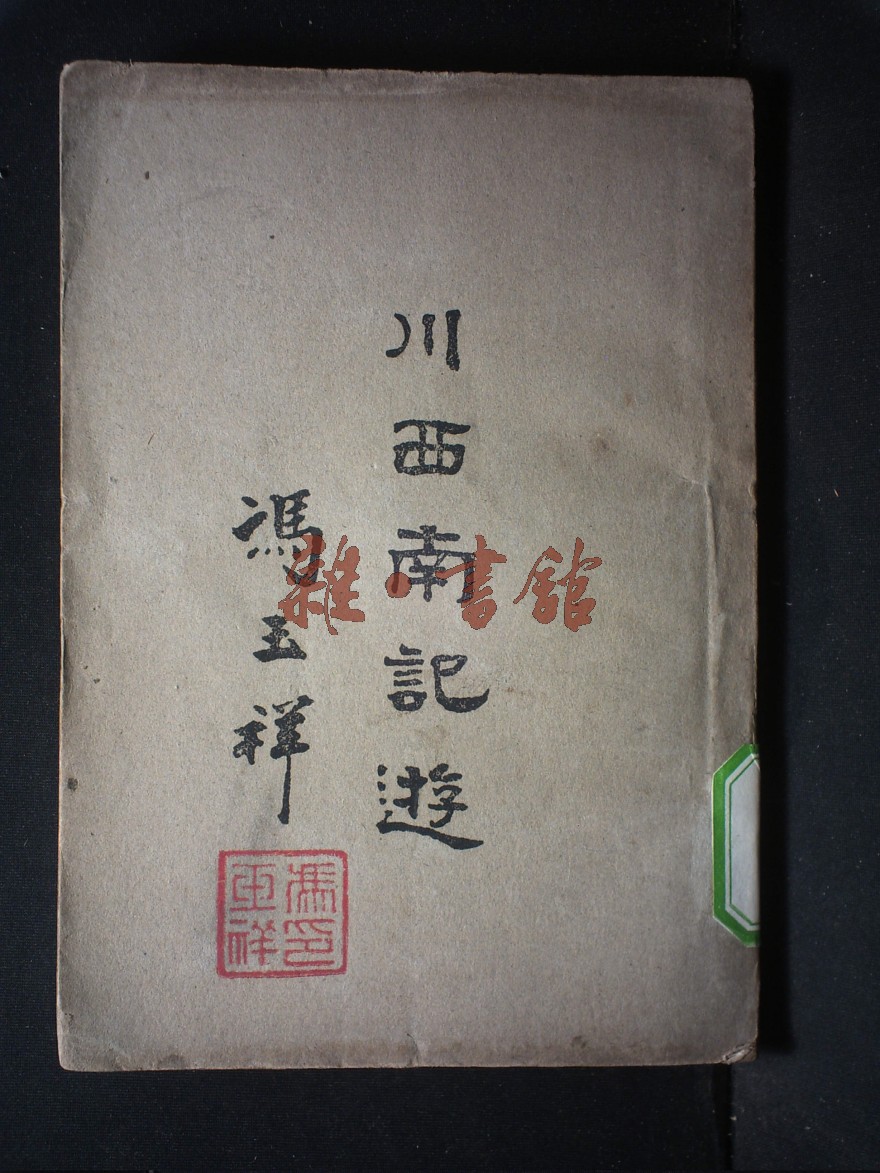 川西南記遊
馮玉祥
馮玉祥印
雜·書館